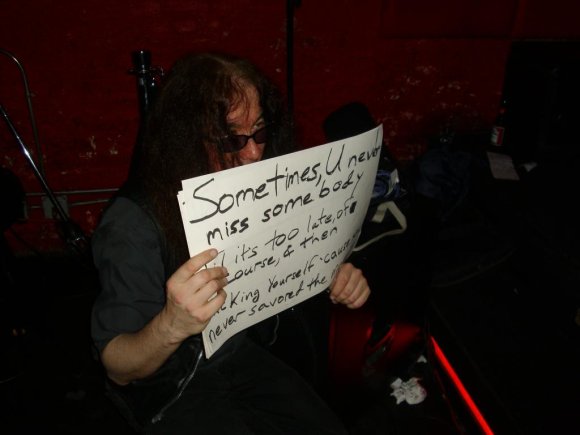 Sometimes, U never
miss somebody
it's too late, of
course, & then
king Yourself 'cause
never savored the